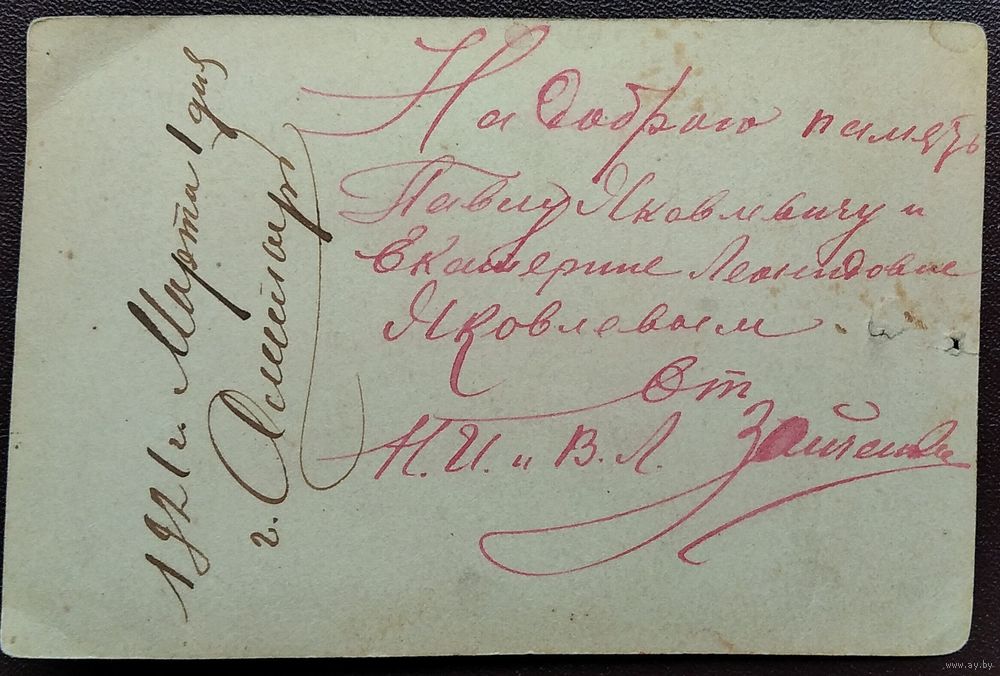 На доброю память
Павлу Яковлевичу и
Екатерине Леонидовне
Яковлевым.
От
Н. И. и В. Л.
1921 г. Марта 1 дня
г.
www.ay.by